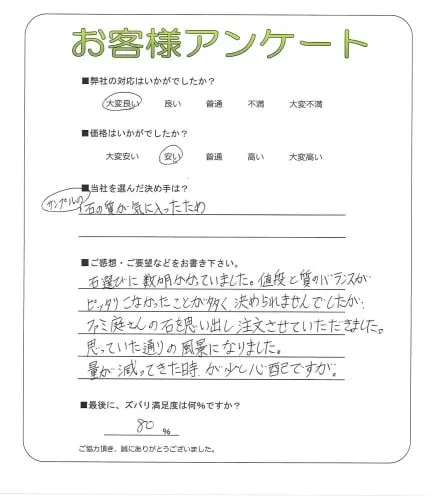 お客様アンケート
■弊社の対応はいかがでしたか？
大変良い 良い 普通 不満 大変不満
■価格はいかがでしたか？
大変安い 安い 普通 高い 大変高い
■当社を選んだ決め手は？
サンプルの 石の質が気に入ったため
■ご感想・ご要望などをお書き下さい。
石選びに数ヶ月かかっていました。値段と質のバランスが
ピッタリこなかったことが多く、決められませんでしたが、
ファミ庭さんの石を思い出し注文させていただきました。
思っていた通りの風景になりました。
量が減ってきた時、が少し心配ですが。
■最後に、ズバリ満足度は何％ですか？
80 ％
ご協力頂き、誠にありがとうございました。